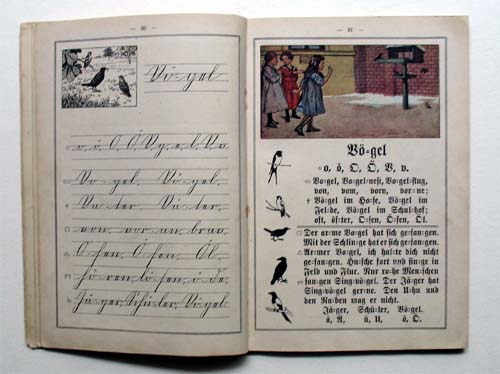 — 30 —
Vö-gel
o, ö, O, Ö, V, g, e, l, V, v.
Vo-gel, Vögel.
Va-ter, Vä-ter.
von, vor-an, brav,
O-fen, Öfen, Öl.
hö-ren, lö-sen, ö-de,
Jä-ger, Schü-ler, Vögel
— 31 —
Vö-gel
o, ö, O, Ö, V, v.
Vo-gel, Vo-gel-nest, Vo-gel-flug,
von, vom, vorn, vor-ne;
Vö-gel im Ho-fe, Vö-gel im
Fel-de, Vö-gel im Schul-hof;
oft, öf-ter, O-fen, Ö-fen, Öl.
Der ar-me Vo-gel hat sich ge-fan-gen.
Mit der Schlin-ge hat er sich ge-fan-gen.
Ar-mer Vo-gel, ich hal-te dich nicht
ge-fan-gen. Hu-sche fort und sin-ge in
Feld und Flur. Nur ro-he Men-schen
fan-gen Sing-vö-gel. Der Jä-ger hat
Sing-vö-gel ger-ne. Den U-hu und
den Ra-ben mag er nicht.
Jä-ger, Schü-ler, Vö-gel.
ä, Ä ü, Ü ö, Ö.